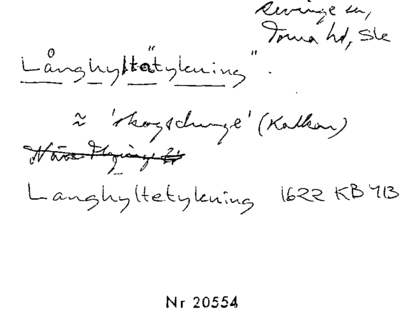 Revinge sn,
Torna hd, Sk
Långhyltätykning".
≈ 'skogsdunge' (Kalkon)
Langhyltetykning 1622 KB 413
Nr 20554